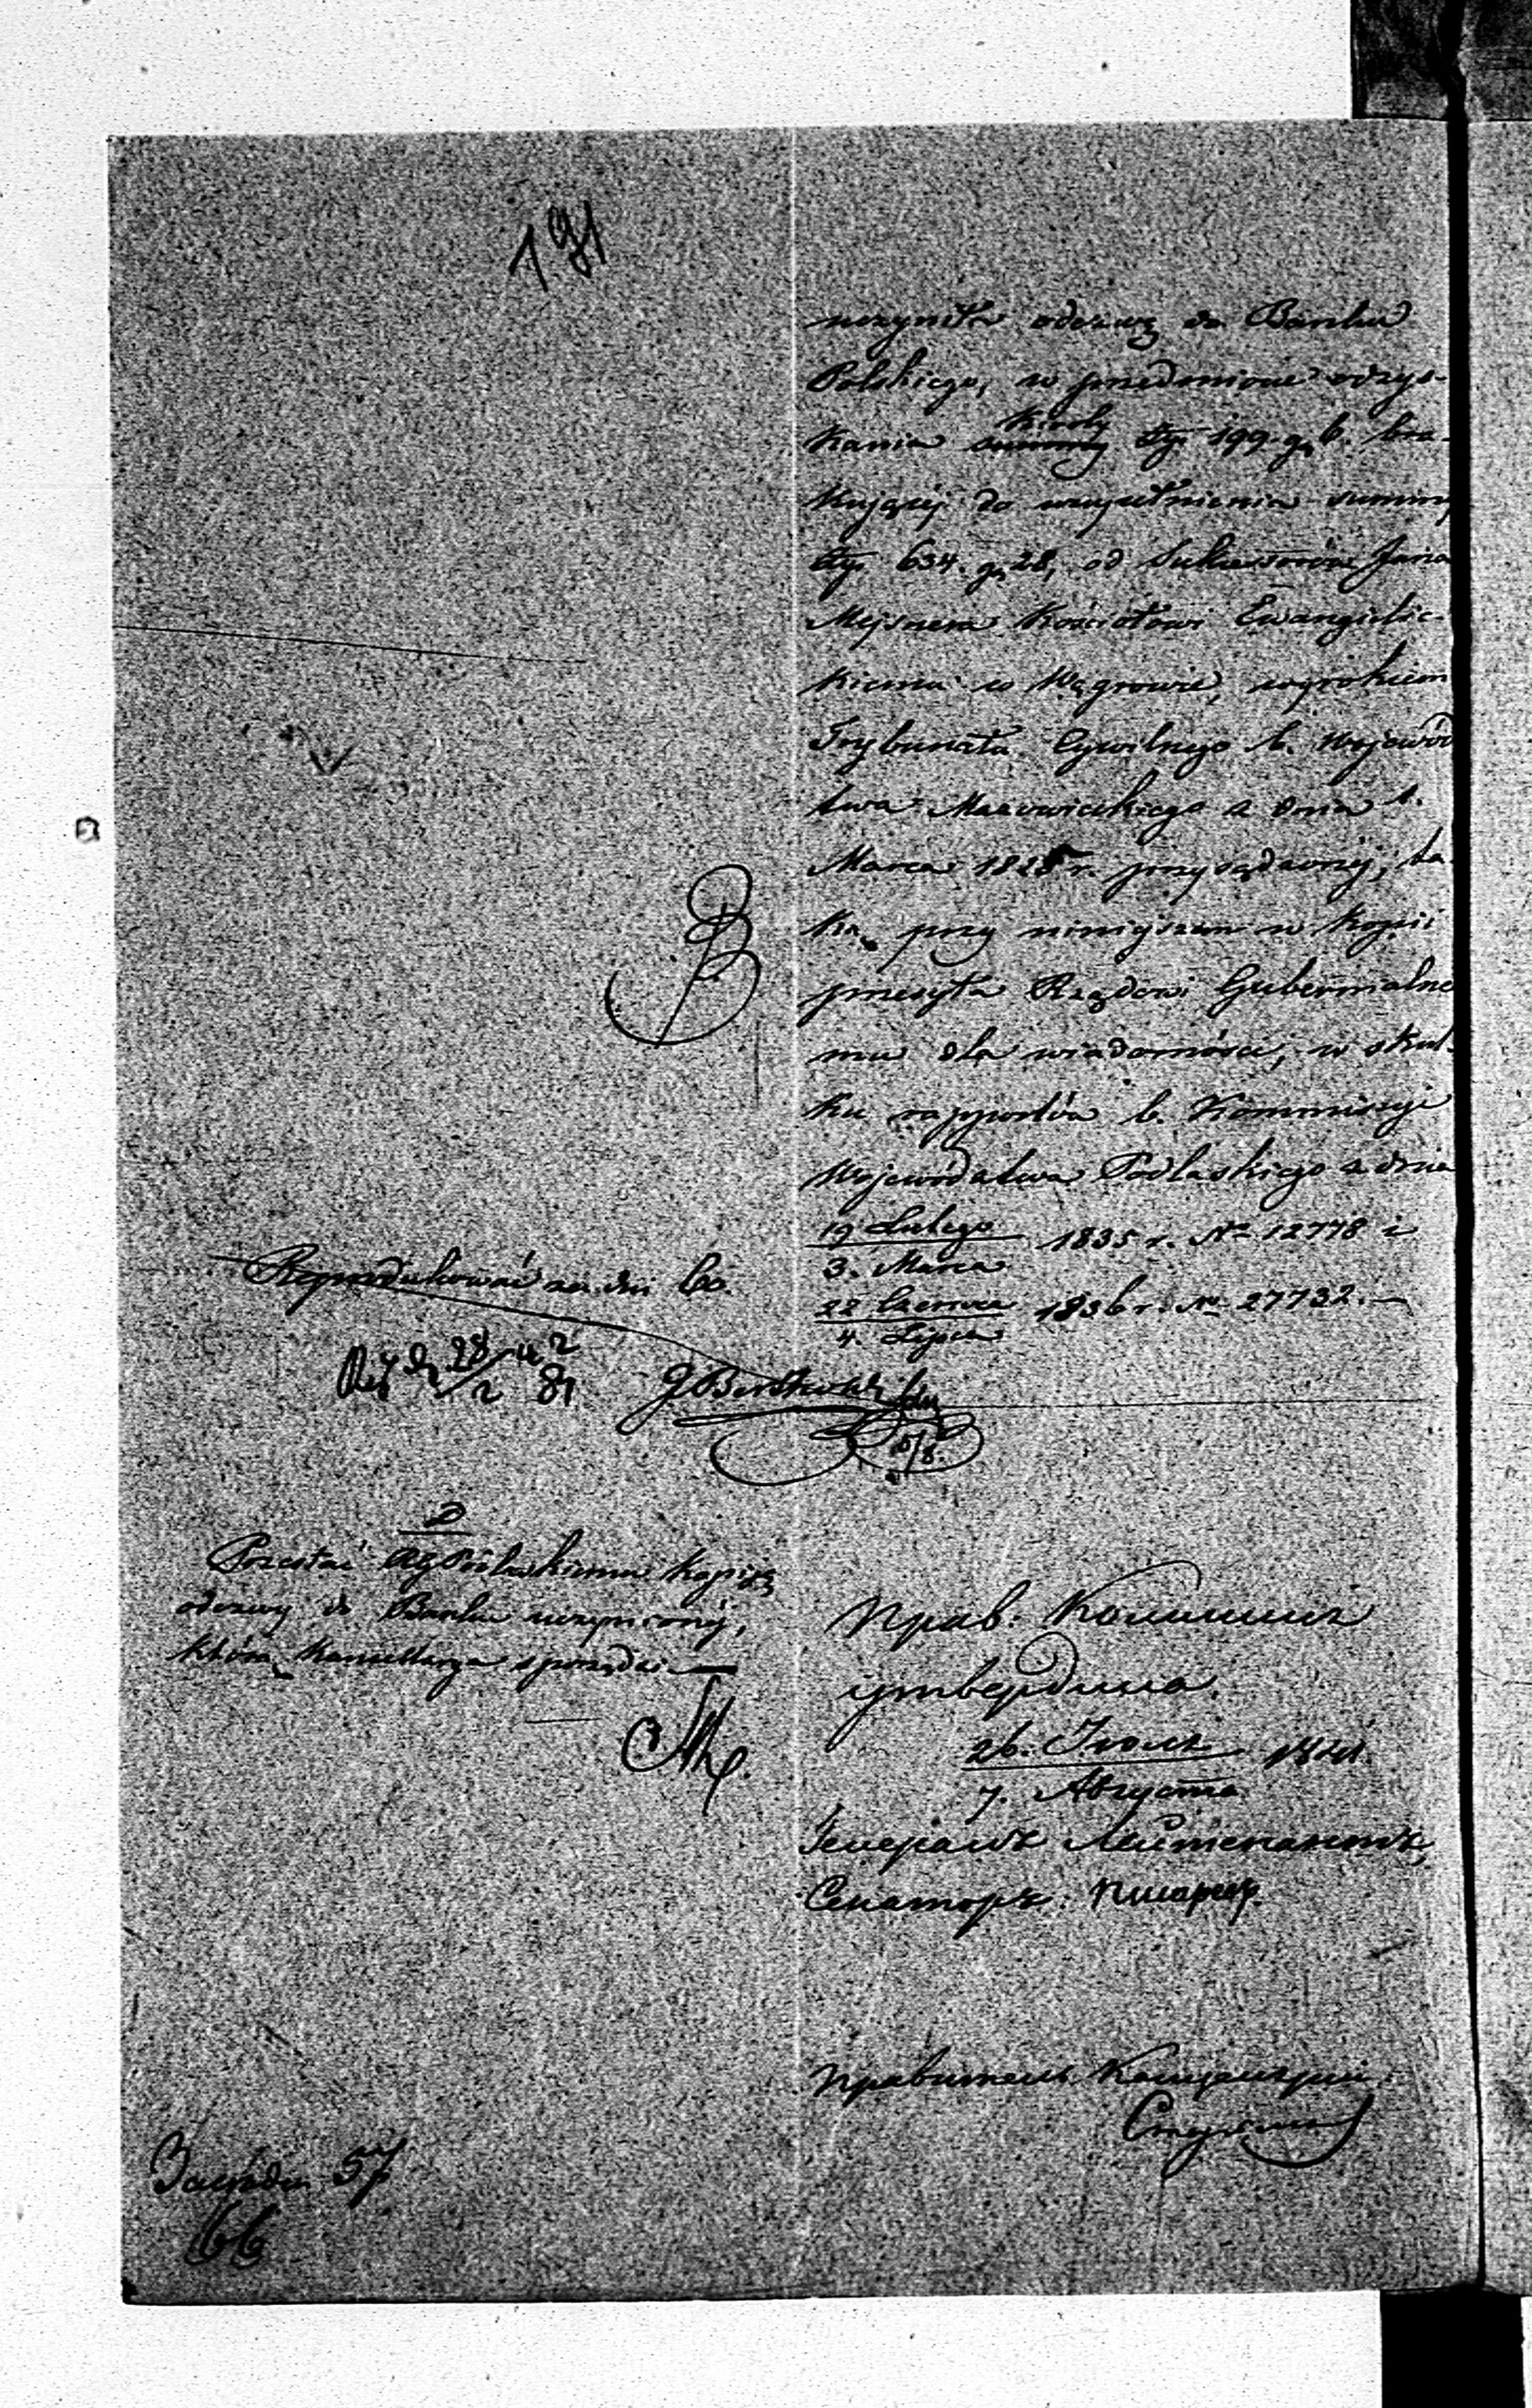 191
uczyniła odezwę do Banku
Polskiego, w przedmiocie odzys-
kania kwoty summy złp. 199. g. 6. bra-
kującéj do uzupełnienia summy
złp. 634. g. 28, od Sukcessorów Jana
Mejsnera Kościołowi Ewangielic-
kiemu w Węgrowie, wyrokiem
Trybunału Cywilnego b. Wojewódz
twa Mazowieckiego z dnia 1.
Marca 1825 r. przysądzonéj, ta
ką przy niniejszem w kopii
przesyła Rządowi Gubernialne
mu dla wiadomości, w skut-
ku rapportów b. Kommissyi
Województwa Podlaskiego z dnia
19 Lutego
3. Marca 1835 r. No 12778 i
22 Czerwca
4. Lipca 1836 r. No 27732. —
Reprodukować za dni 60.
28/2
D
Przesłać RgPodlaskiemu kopiją
odezwy do Banku uczynionéj,
którą Kancellarya sporządzi —
Прав: Коммиссіи
утвердила
26. Іюля
7. Августа 1841.
Генералъ Лейтенантъ,
Сенаторъ: Писаревъ.
Правитель Канцеляріи
57
66